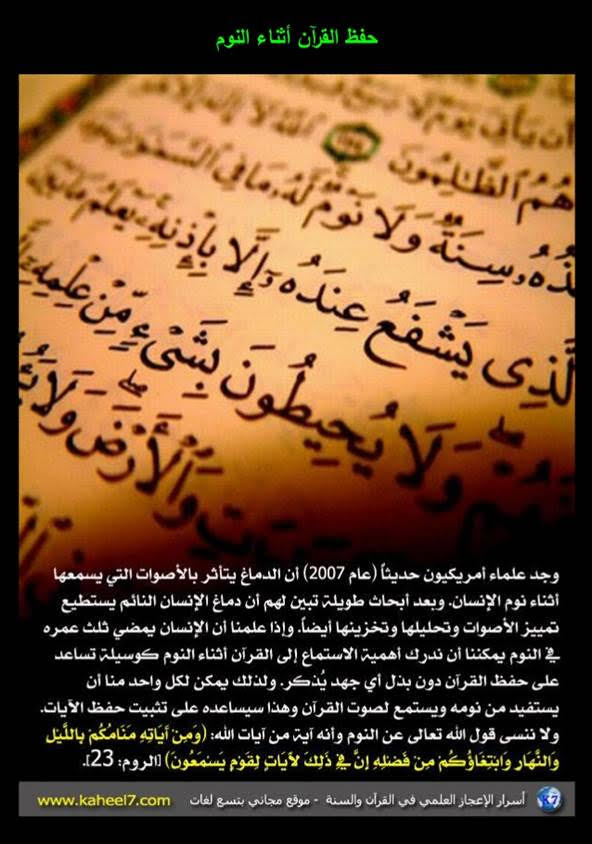 حفظ القرآن أثناء النوم
أن يأتي يوم لا بيع
هُمُ ٱلظَّٰلِمُونَ ٱللَّهُ لَآ إِلَٰهَ إِلَّا هُوَ
خُذُهُۥ سِنَةٌ وَلَا نَوْمٌ لَّهُۥ مَا فِي ٱلسَّمَٰوَٰتِ
لَّذِي يَشْفَعُ عِندَهُۥٓ إِلَّا بِإِذْنِهِۦ يَعْلَمُ مَا بَيْنَ
وَلَا يُحِيطُونَ بِشَىْءٍ مِّنْ عِلْمِهِۦٓ
وَٱلْأَرْضَ وَلَا
وجد علماء أمريكيون حديثاً (عام 2007) أن الدماغ يتأثر بالأصوات التي يسمعها
أثناء نوم الإنسان. وبعد أبحاث طويلة تبين لهم أن دماغ الإنسان النائم يستطيع
تمييز الأصوات وتحليلها وتخزينها أيضاً. وإذا علمنا أن الإنسان يمضي ثلث عمره
في النوم يمكننا أن ندرك أهمية الاستماع إلى القرآن أثناء النوم كوسيلة تساعد
على حفظ القرآن دون بذل أي جهد يُذكر. ولذلك يمكن لكل واحد منا أن
يستفيد من نومه ويستمع لصوت القرآن وهذا سيساعده على تثبيت حفظ الآيات.
ولا ننسى قول الله تعالى عن النوم وأنه آية من آيات الله: (وَمِنْ آَيَاتِهِ مَنَامُكُمْ بِاللَّيْلِ
وَالنَّهَارِ وَابْتِغَاؤُكُمْ مِنْ فَضْلِهِ إِنَّ فِي ذَلِكَ لَآَيَاتٍ لِقَوْمٍ يَسْمَعُونَ) [الروم: 23].
أسرار الإعجاز العلمي في القرآن والسنة - موقع مجاني بتسع لغات www.kaheel7.com